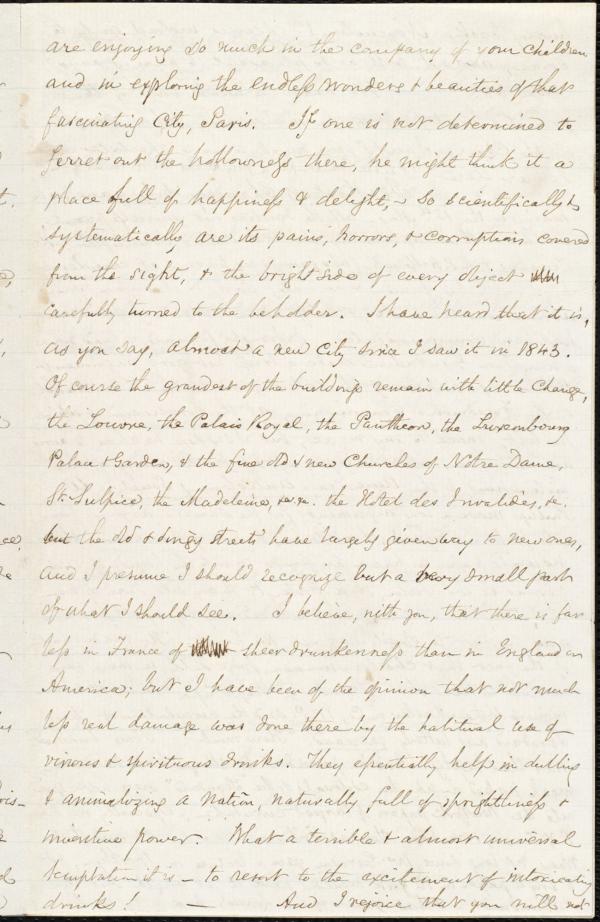 are enjoying so much in the company of your children
and in exploring the endless wonders & beauties of that
fascinating City, Paris. If one is not determined to
ferret out the hollowness there, he might think it a
place full of happiness & delight, - So scientifically &
systematically are its pains, horrors, & corruptions covered
from the sight, & the bright side of every object
carefully turned to the beholder. I have heard that it is,
as you say, almost a new City since I saw it in 1843.
Of course the grandest of the buildings remain with little change,
the Louvre, the Palais Royal, the Pantheon, the Luxembourg
Palace & Garden, & the fine old & new Churches of Notre Dame,
St. Sulpice, the Madeleine, &c. &c. the Hotel des Invalides, &c.
but the old & dingy streets have largely given way to new ones,
and I presume I should recognize but a very small part
of what I should see. I believe, with you, that there is far
less in France of sheer drunkenness than in England or
America; but I have been of the opinion that not much
less real damage was done there by the habitual use of
vinous & spirituous drinks. They essentially help in dulling
& animalizing a nation, naturally full of sprightliness &
inventive power. What a terrible & almost universal
temptation it is - to resort to the excitement of intoxicating
drinks! — And I rejoice that you will not